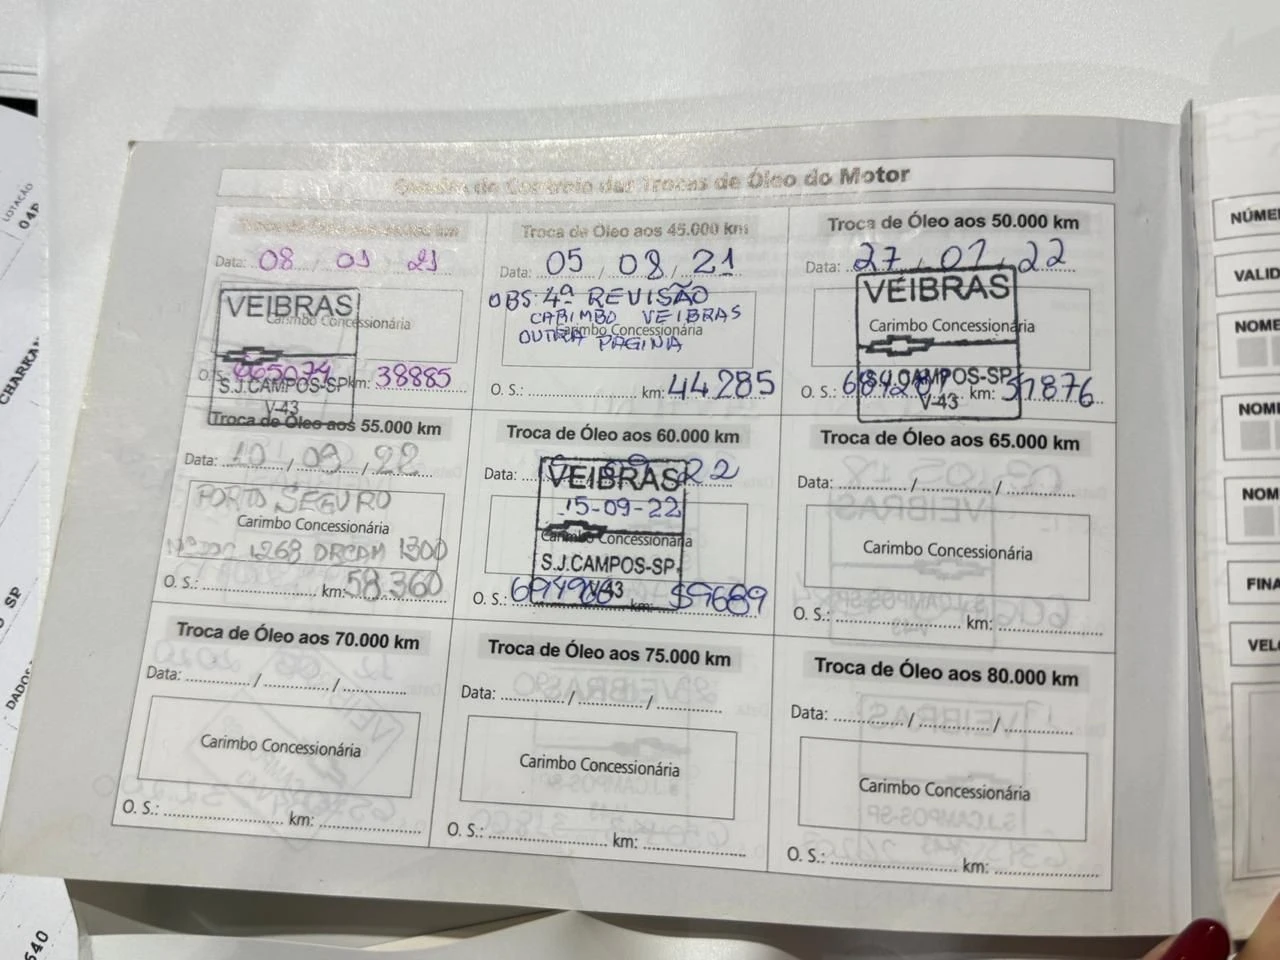 Quadro de Controle das Trocas de Óleo do Motor
Data: 08 / 01 / 21
VEIBRAS
Carimbo Concessionária
O. S.: 665074 km: 38885
S.J.CAMPOS-SP
V-43
Troca de Óleo aos 45.000 km
Data: 05 / 08 / 21
OBS: 4ª REVISÃO
CARIMBO VEIBRAS
Carimbo Concessionária
OUTRA PÁGINA
O. S.: km: 44.285
Troca de Óleo aos 50.000 km
Data: 27 / 01 / 22
VEIBRAS
Carimbo Concessionária
S.J.CAMPOS-SP
O. S.: km: 51876
V-43
Troca de Óleo aos 55.000 km
Data: 10 / 09 / 22
PORTO SEGURO
Carimbo Concessionária
1268 1300
O. S.: km: 58.360
Troca de Óleo aos 60.000 km
Data: 22
VEIBRAS
15-09-22
Carimbo Concessionária
S.J.CAMPOS-SP
O. S.: km: 59689
V-43
Troca de Óleo aos 65.000 km
Data: / /
Carimbo Concessionária
O. S.: km:
Troca de Óleo aos 70.000 km
Data: / /
Carimbo Concessionária
O. S.: km:
Troca de Óleo aos 75.000 km
Data: / /
Carimbo Concessionária
O. S.: km:
Troca de Óleo aos 80.000 km
Data: / /
Carimbo Concessionária
O. S.: km:
LOTAÇÃO
04P
SP
DADOS
540
NÚME
VALID
NOME
NOM
NOM
FINA
VEL